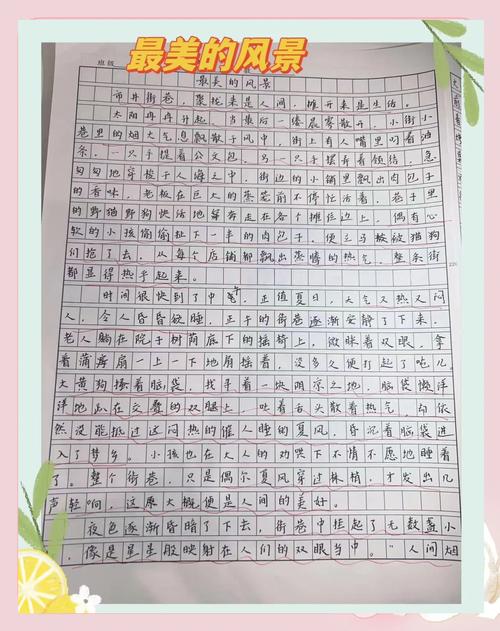 最美的风景
班级
最美的风景
市井街巷，聚拢来是人间，摊开来是生活。
太阳冉冉升起，当最后一缕晨雾散开，小街小
巷里的烟火气息飘散于风中，街上有人嘴里叼着油
条，一只手提着公文包，另一只手摆弄着领结，急
匆匆地穿梭于人海之中，街边的小铺里飘出肉包子
的香味，老板在巨大的蒸笼前不停忙活着，巷子里
的野猫野狗快活地穿奔走在各个摊位边上，偶有心
软的小孩偷偷扯下一半的肉包子，便立马被被猫狗
们抢了去，从每个店铺都飘出蒸腾的热气，整条街
都显得热乎起来。
时间很快到了中午，正值夏日，天气又热又闷
人，令人昏昏欲睡，正午的街巷逐渐安静了下来，
老人躺在院子树荫底下的摇椅上，微眯着双眼，拿
着蒲扇一上一下地扇摇着，没多久便打起了呼儿。
大黄狗搂着脑袋，找寻着一块阴凉之地，脑袋懒洋
洋地趴在交叠的双腿上，吐着舌头散着热气，却依
然没能抵过这闷热的催人睡的夏风，昏沉着脑袋进
入了梦乡。小孩也在大人的劝哄下不情不愿地睡着
了。整个街巷，只是偶尔夏风穿过林梢，才发出几
声轻响，这原大概便是人间的美好。
夜色逐渐昏暗了下去，街巷中挂起了无数盏小
，像是星星般映射在人们的双眼当中。“人间烟